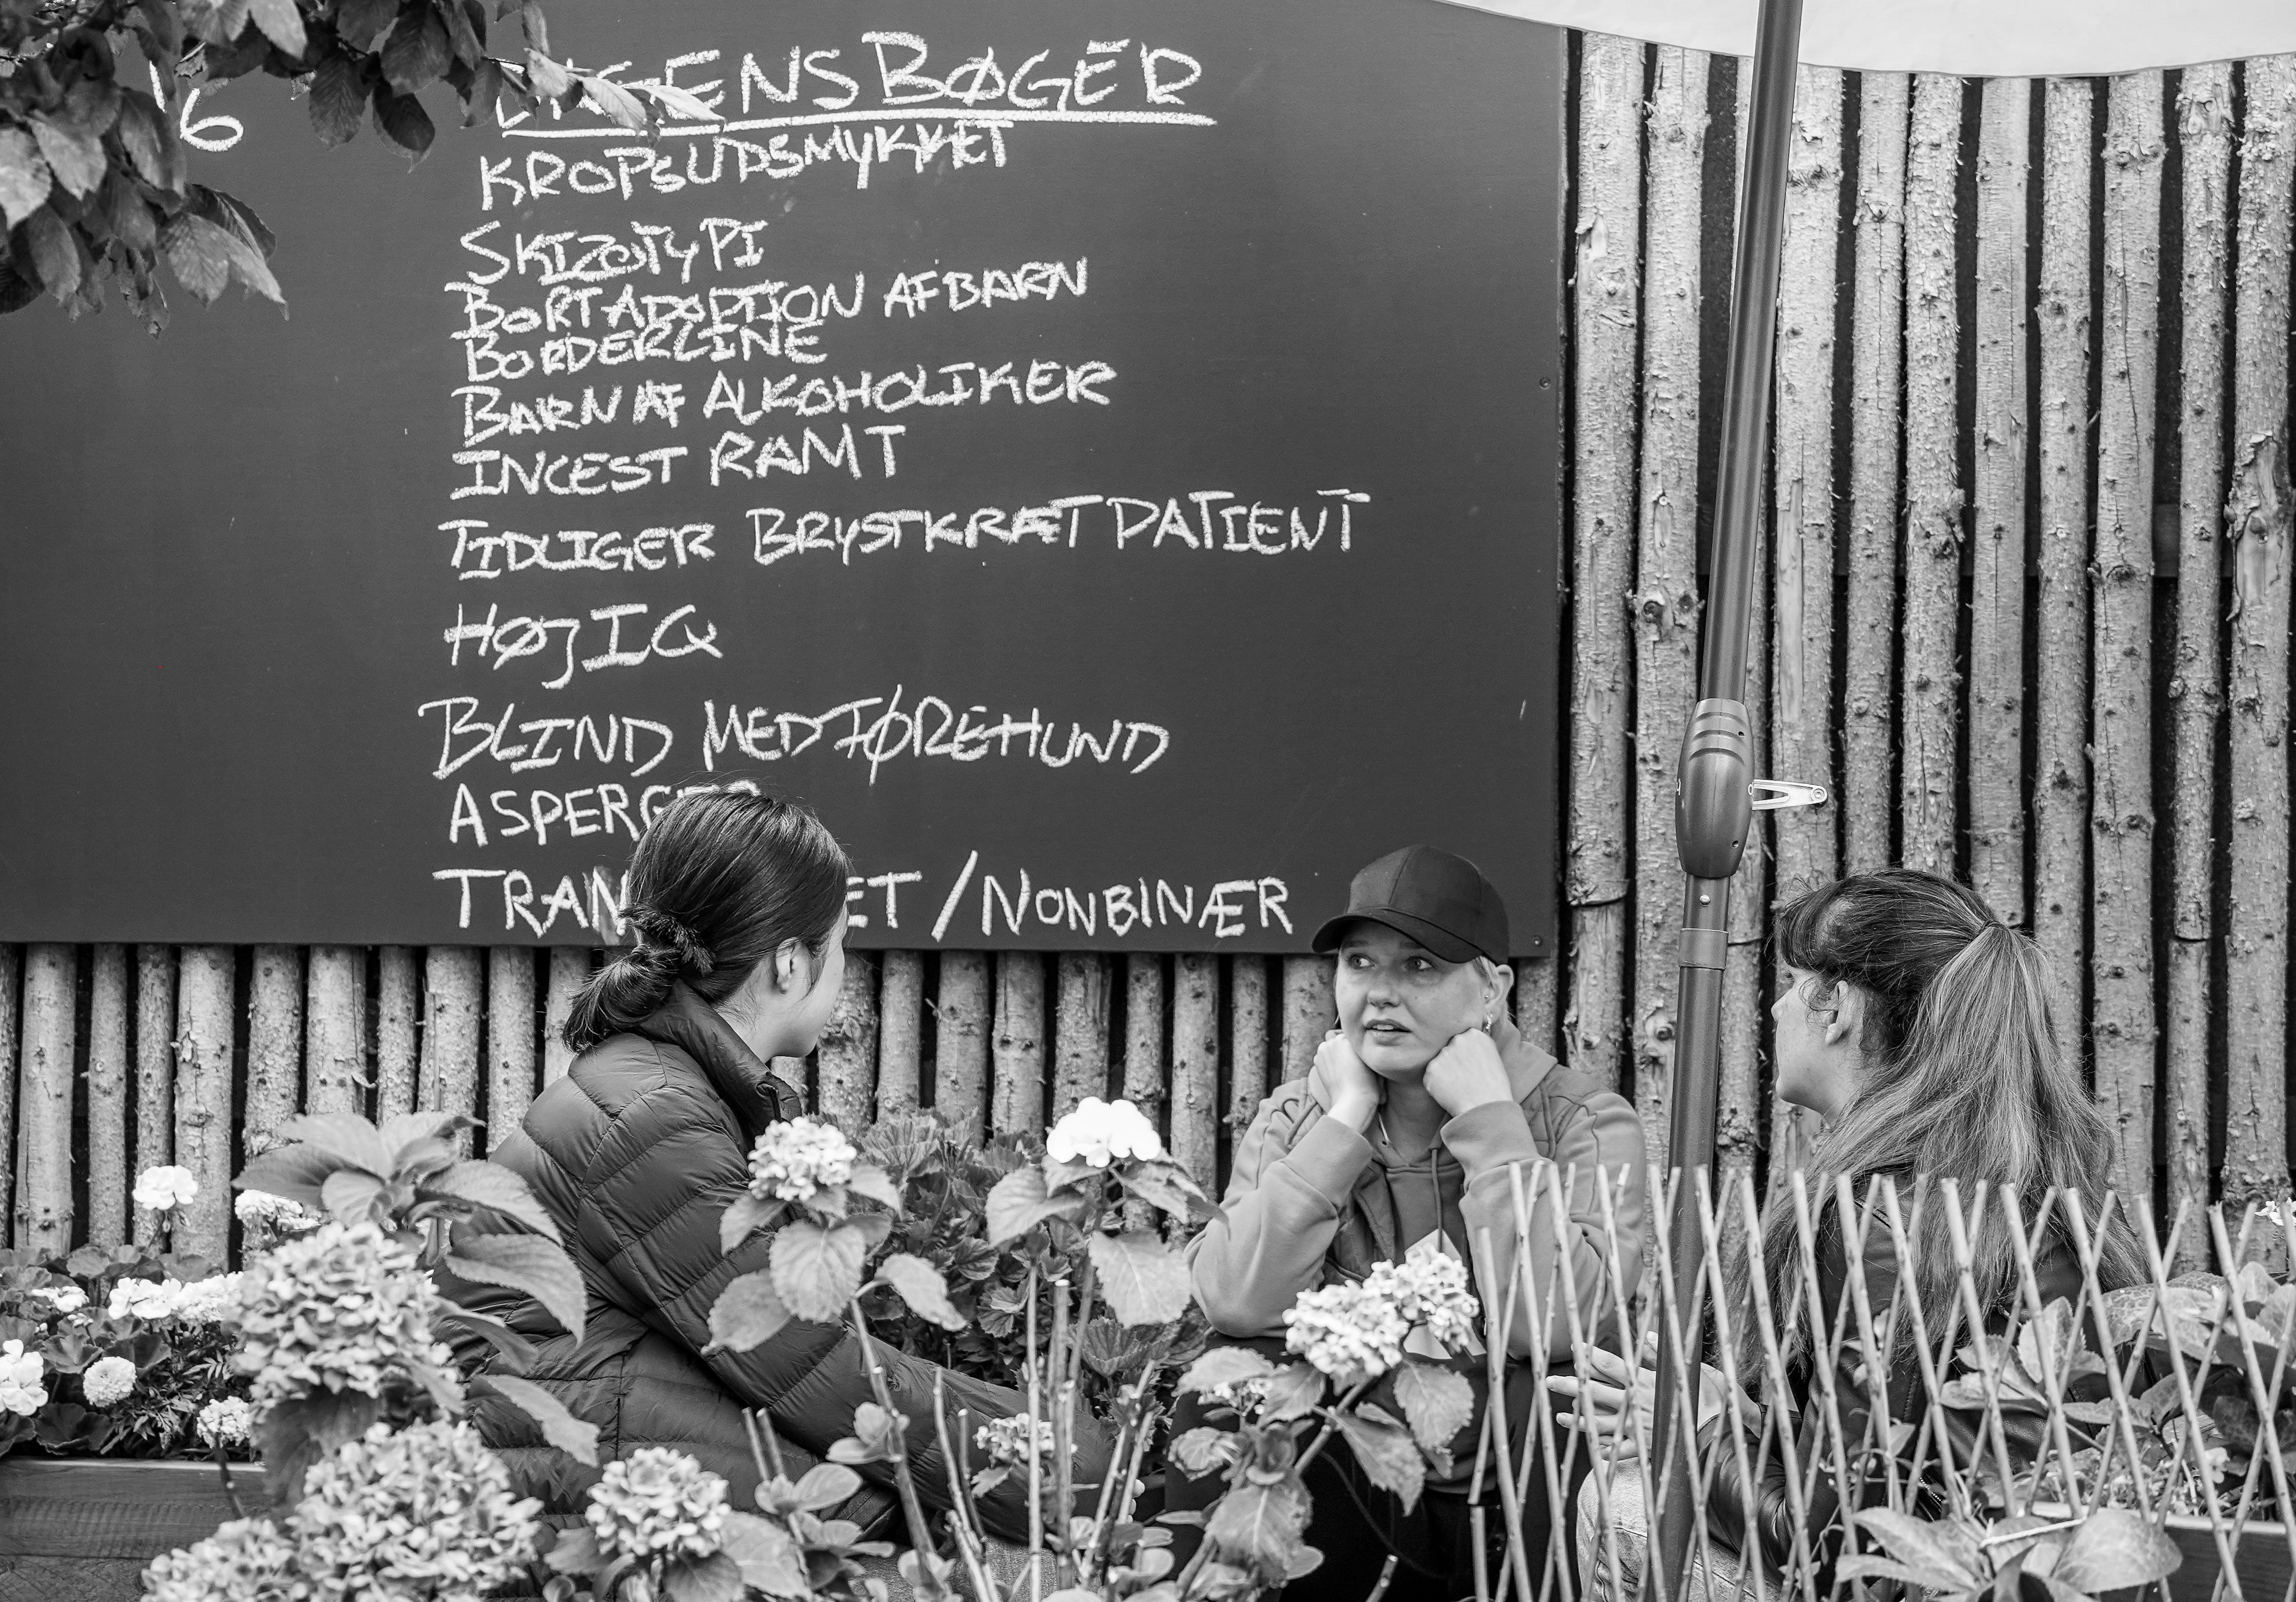 16
BØGER
KROPSUDSMYKKET
SKIZOTYPI
BORTADOPTION AF BARN
BORDERLINE
BARN AF ALKOHOLIKER
INCEST RAMT
TIDLIGER BRYSTKRÆT PATIENT
HØJ IQ
BLIND MED FØREHUND
ASPERGER
/NONBINÆR